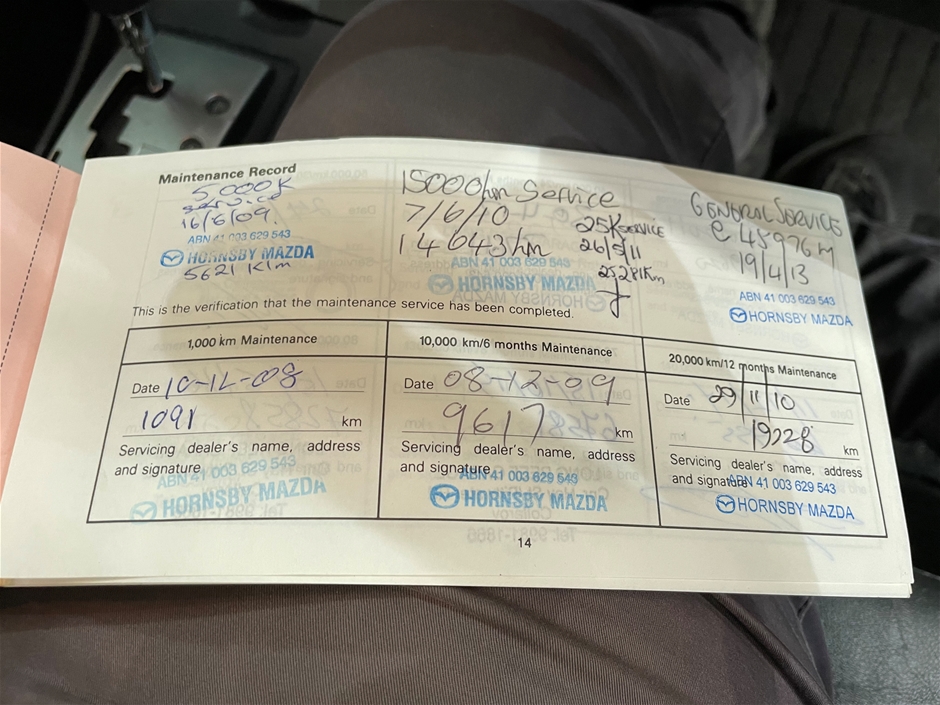 Maintenance Record
5,000K
service
16/6/09.
ABN 41 003 629 543
HORNSBY MAZDA
5621 Klm
15000km Service
7/6/10
14643km
ABN 41 003 629 543
HORNSBY MAZDA
25K SERVICE
26/5/11
25281Km
GENERAL SERVICE
@ 45976 m
19/4/13
ABN 41 003 629 543
HORNSBY MAZDA
This is the verification that the maintenance service has been completed.
1,000 km Maintenance
Date 10-12-08
1091 km
Servicing dealer's name, address
and signature
ABN 41 003 629 543
HORNSBY MAZDA
10,000 km/6 months Maintenance
Date 08-12-09
9617 km
Servicing dealer's name, address
and signature
ABN 41 003 629 543
HORNSBY MAZDA
20,000 km/12 months Maintenance
Date 29/11/10
19228 km
Servicing dealer's name, address
and signature
ABN 41 003 629 543
HORNSBY MAZDA
14